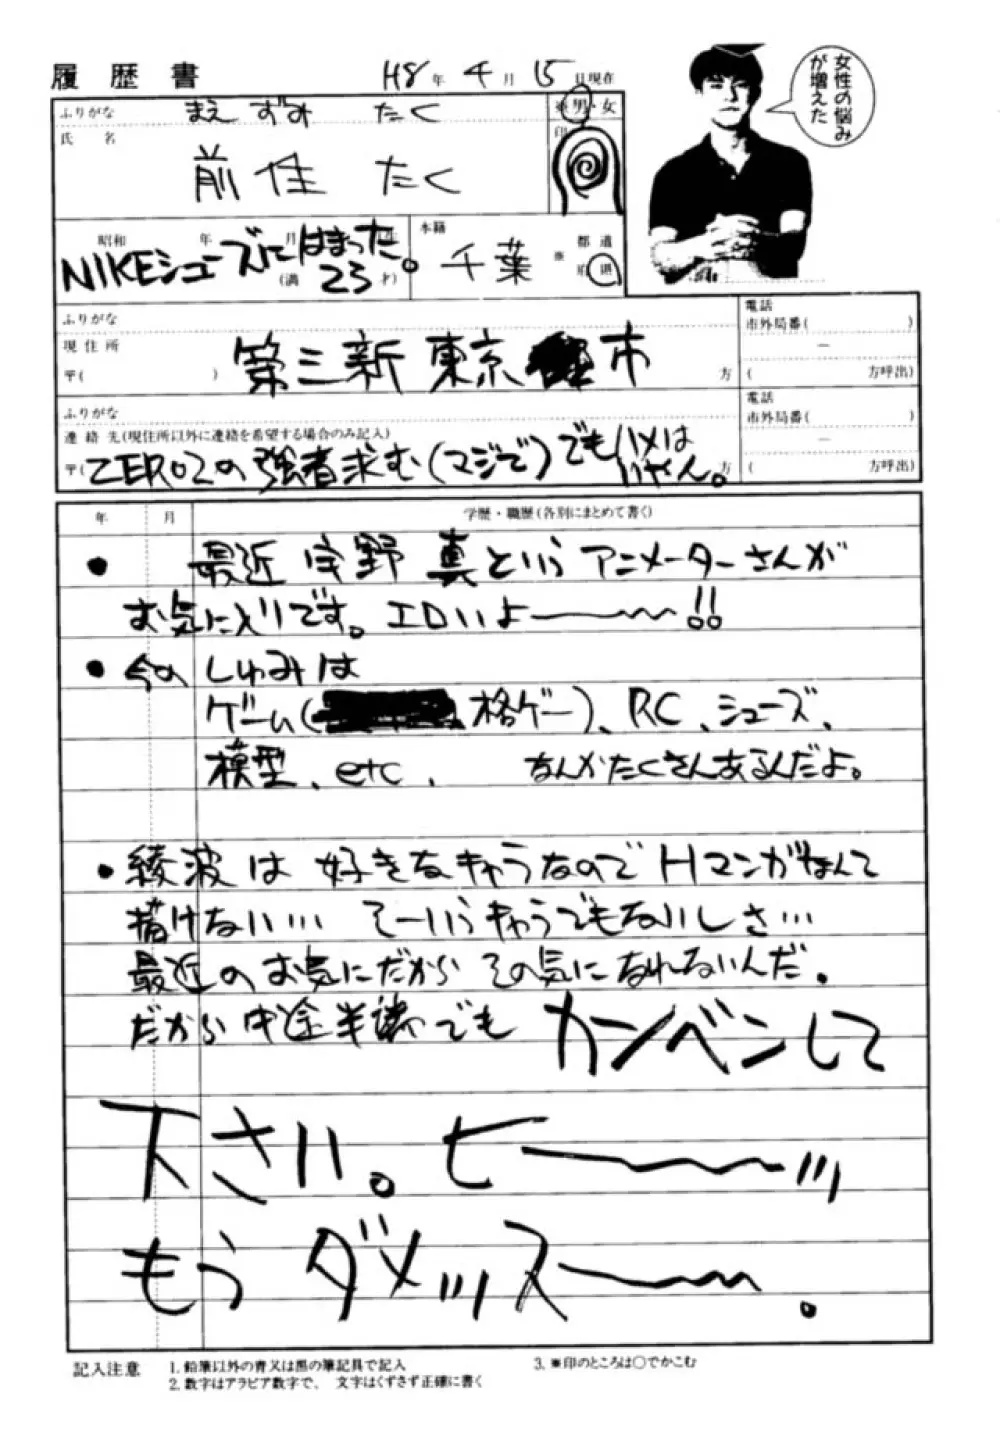 履歴書
H8年 4月 15日現在
ふりがな まえずみ たく
※男・女
氏名
印
前住 たく
女性の悩み
が増えた
昭和 年 月 生
NIKEシューズにはまった。
(満 23才)
本籍
千葉
※ 都道府県
ふりがな
現住所
〒( )
第三新東京市
方
電話
市外局番( )
―
( 方呼出)
ふりがな
連絡先(現住所以外に連絡を希望する場合のみ記入)
〒( ZERO2の強者求む(マジで)でもハメは
いやん。
方
電話
市外局番( )
―
( 方呼出)
年 月 学歴・職歴(各別にまとめて書く)
● 最近 宇野 真というアニメーターさんが
お気に入りです。エロいよ――〜!!
● 今のしゅみは
ゲーム( 格ゲー)、RC、シューズ、
模型、etc. なんかたくさんあるんだよ。
● 綾波は 好きなキャラなので Hマンガなんて
描けない… そーいうキャラでもないしさ…
最近のお気にだから その気になれないんだ。
だから 中途半端でも カンベンして
下さい。ヒ――〜ッ
もう ダメッス――〜。
記入注意
1. 鉛筆以外の青又は黒の筆記具で記入
2. 数字はアラビア数字で、文字はくずさず正確に書く
3. ※印のところは○でかこむ